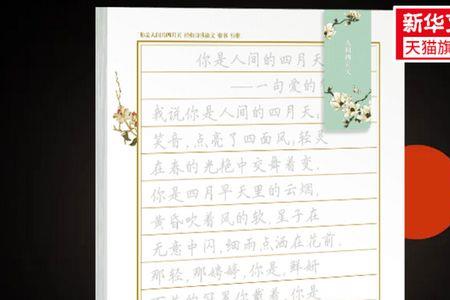 你是人间的四月天
新华
天猫旗
人间四月天
你是人间的四月天
——一句爱的
我说你是人间的四月天；
笑音，点亮了四面风，轻灵
在春的光艳中交舞着变。
你是四月早天里的云烟，
黄昏吹着风的软，星子在
无意中闪，细雨点洒在花前。
那轻，那娉婷，你是，鲜妍